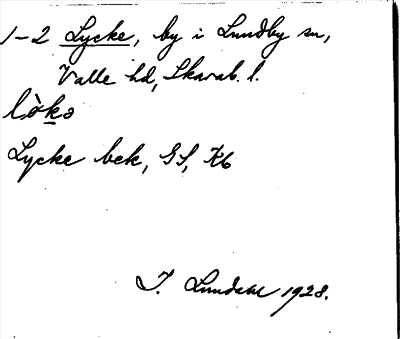 1-2 Lycke, by i Lundby sn,
Valle hd, Skarab. l.
lòkə
Lycke bek, GS, Kb
J. Lundahl 1928.